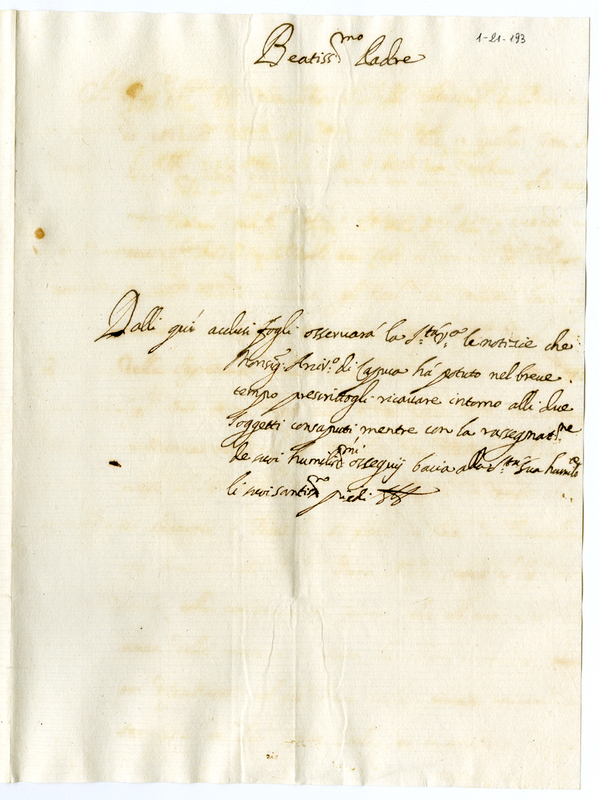 1-21-193
Beatiss.mo Padre
Dalli quì acclusi fogli osseruarà la S.tà V.a le notizie che
Monsig.r Arciv.o di Capua hà potuto nel breue
tempo prescrittogli ricauare intorno alli due
soggetti consaputi; mentre con la rassegnat.ne
de suoi humiliss.mi ossequij bacia alla S.tà Sua humilm.te
li suoi santiss.mi piedi